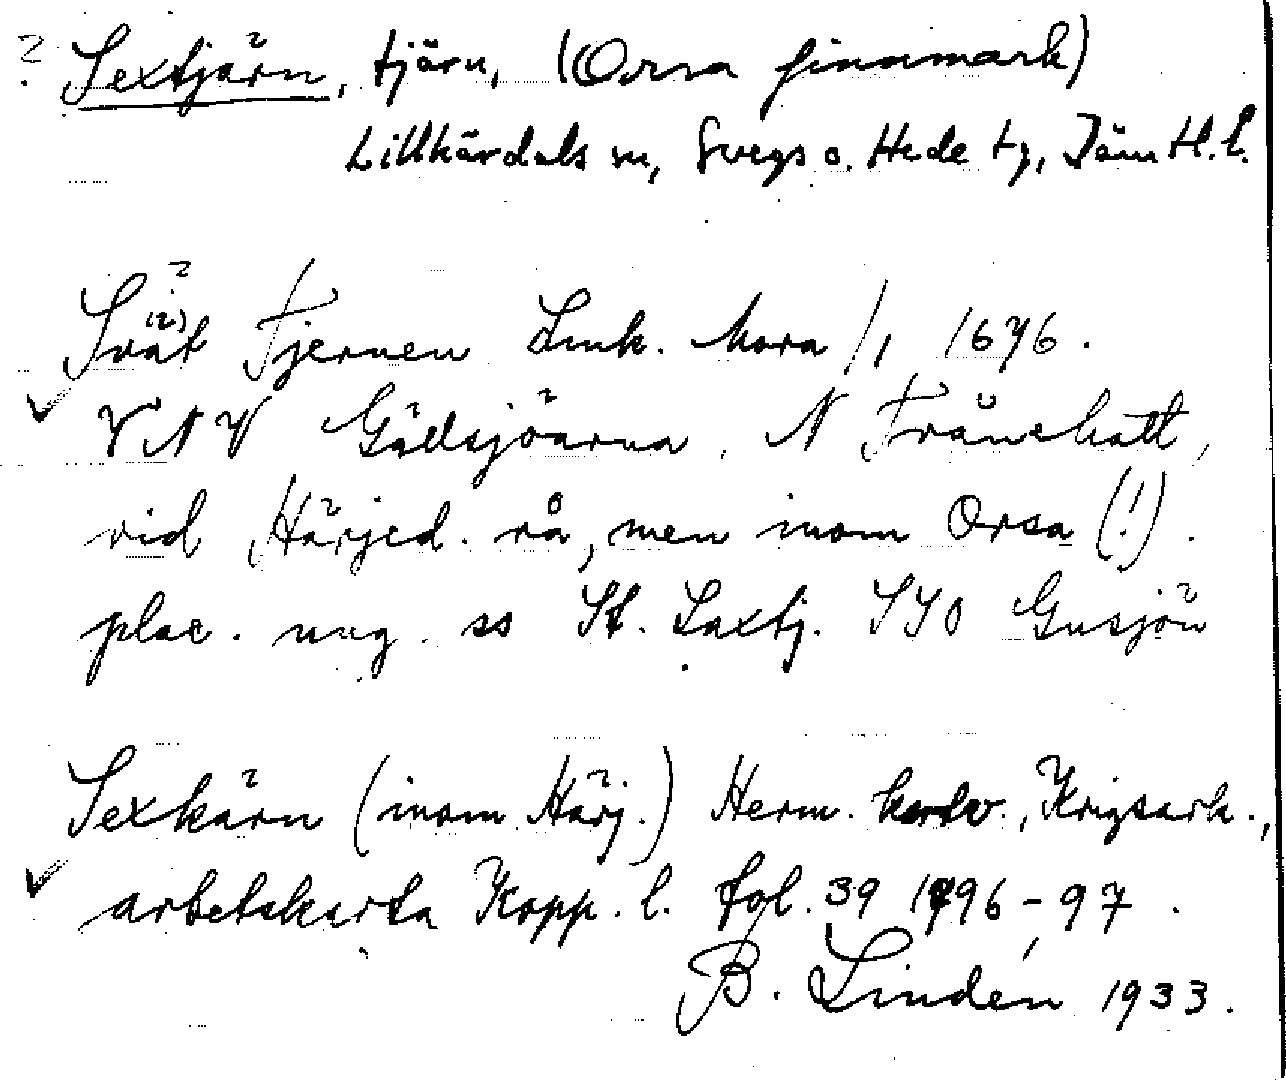 ? Sextjärn, tjärn, (Orsa finnmark)
Lillhärdals sn, Svegs o. Hede tg, Jämtl. l.
Svät Tjernen Lmk. Mora /1 1676.
VNV Gäddsjöarna, N Fränshatt,
vid Härjed. rå, men inom Orsa (!).
plac. ung. ss St. Laxtj. SSO Gusjön
Sexkärn (inom Härj.) Herm. kartv., Krigsark.,
arbetskarta Kopp. l. fol. 39 1796-97.
B. Lindén 1933.